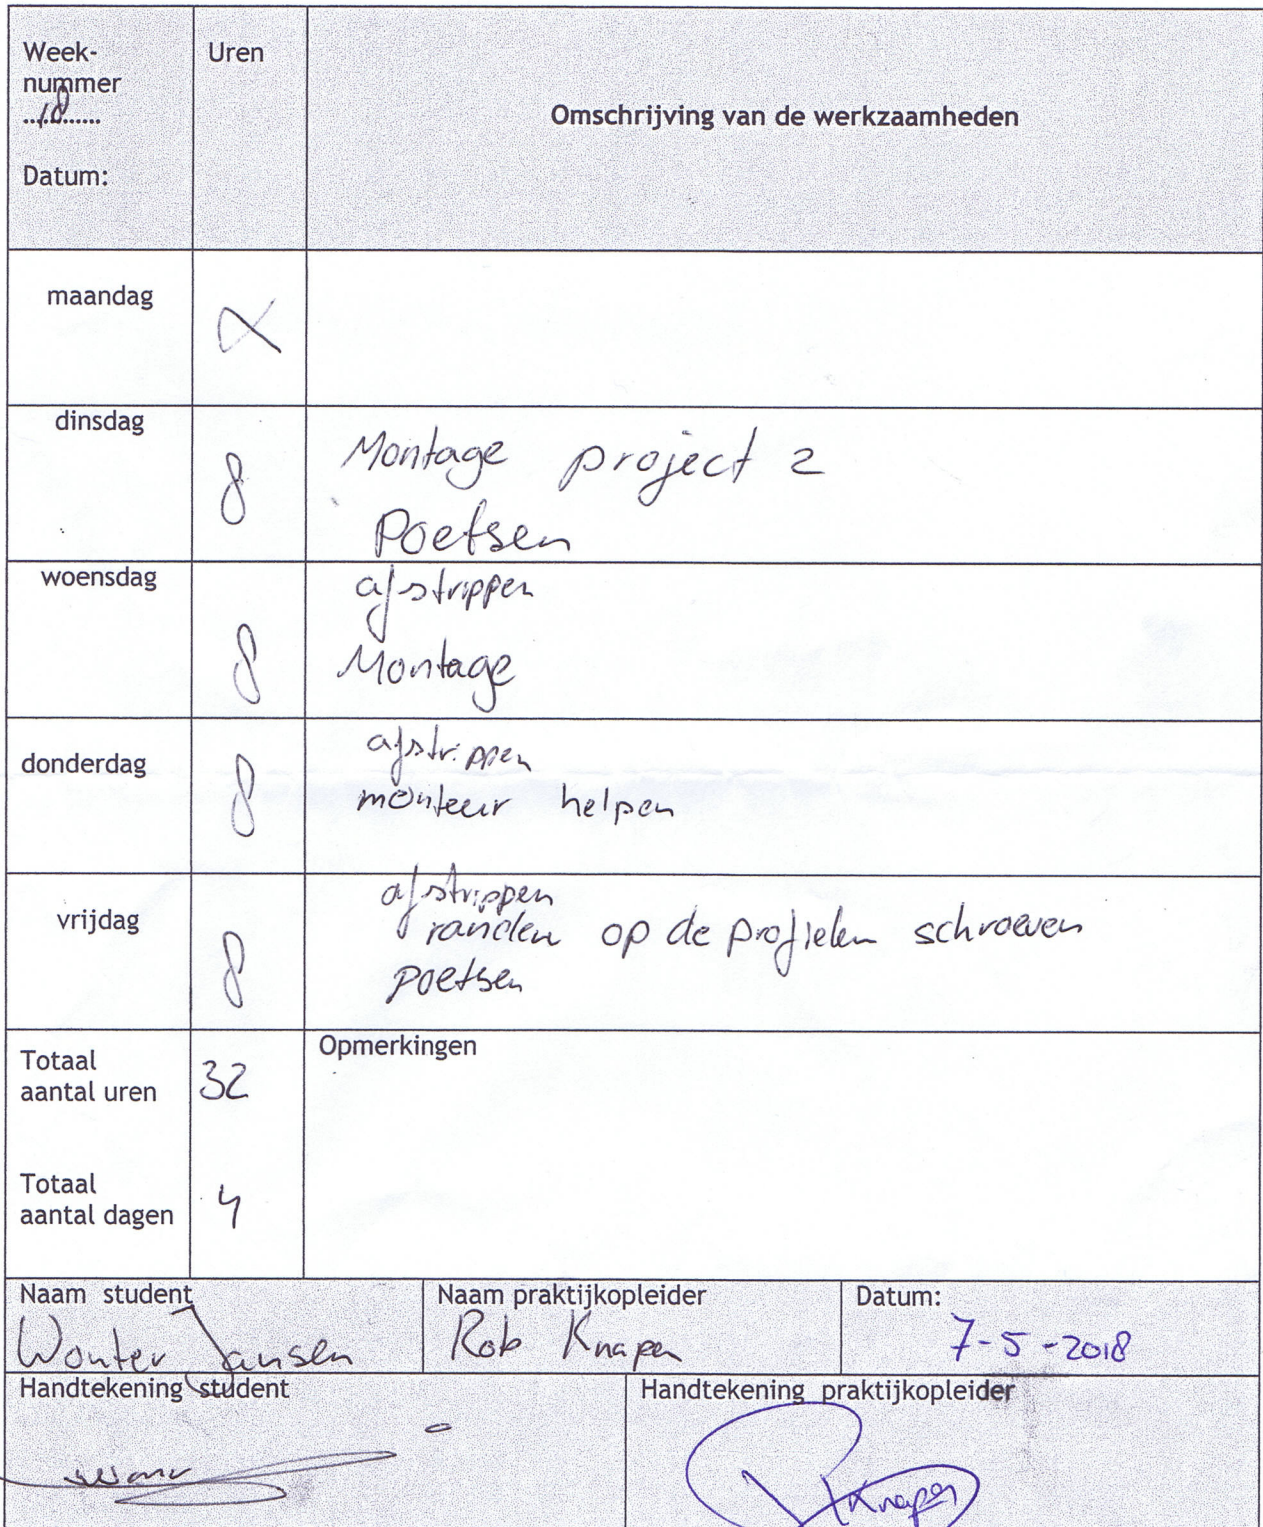 Week-
nummer
18
Datum:
Uren
Omschrijving van de werkzaamheden
maandag
X
dinsdag
8
Montage project 2
Poetsen
woensdag
8
afstrippen
Montage
donderdag
8
afstrippen
monteur helpen
vrijdag
8
afstrippen
randen op de profielen schroeven
poetsen
Totaal
aantal uren
32
Totaal
aantal dagen
4
Opmerkingen
Naam student
Wouter Jansen
Naam praktijkopleider
Rob Knapen
Datum:
7-5-2018
Handtekening student
Handtekening praktijkopleider
RKnapen